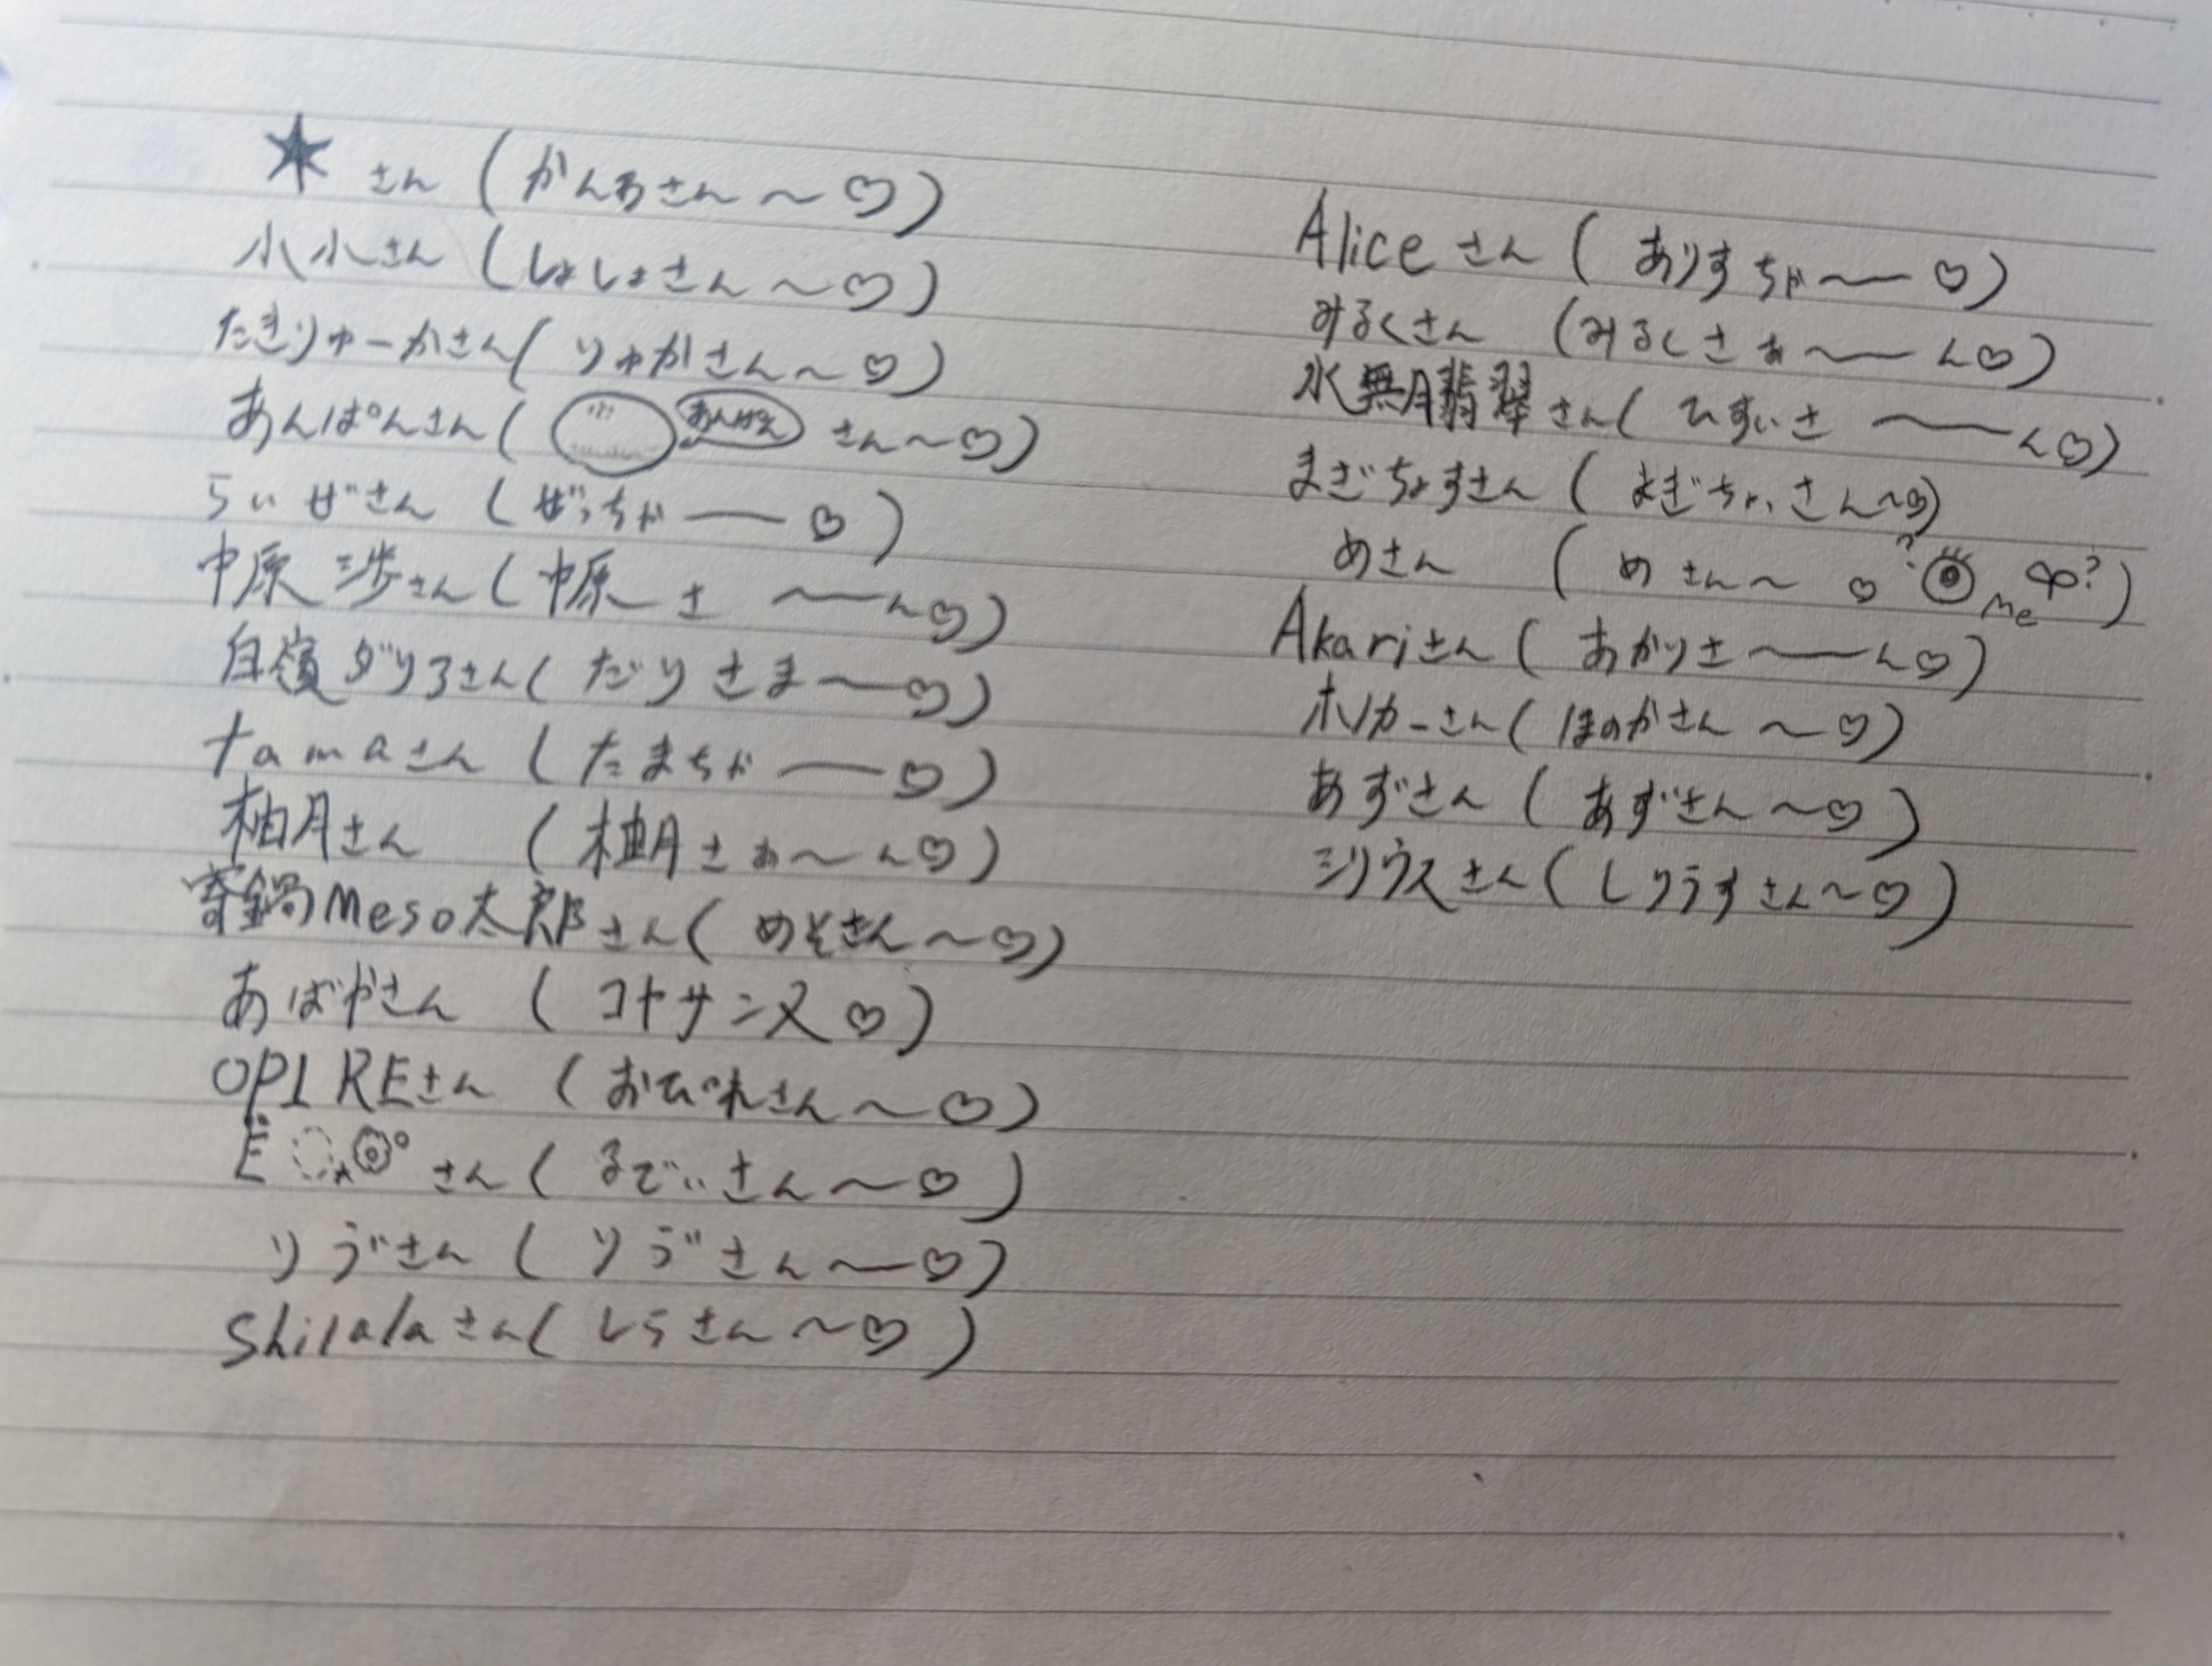 ★さん（かんなさん～♡）
小小さん（しょしょさん～♡）
たきりゅーかさん（りゅかさん～♡）
あんぱんさん（あんぱんさん～♡）
らぃぜさん（ぜっちゃ――♡）
中原 渉さん（中原さ～～ん♡）
白濱ダリアさん（だりさま～～♡）
tamaさん（たまちゃ――♡）
柚月さん（柚月さぁ～ん♡）
寄鍋Meso太郎さん（めそさん～♡）
あばやさん（コトサンヌ♡）
OPI REさん（おぴれさん～♡）
さん（るでぃさん～♡）
りゔさん（りゔさん～♡）
Shilalaさん（しらさん～♡）
Aliceさん（ありすちゃ～―♡）
みるくさん（みるくさぁ～―ん♡）
水無月翡翠さん（ひすいさ～―ん♡）
まぎちょすさん（まぎちょ、さん～♡）
めさん（めさん～♡ ? Me ?）
Akariさん（あかりさ～―ん♡）
ホノカーさん（ほのかさん～♡）
あずさん（あずさん～♡）
シリウスさん（しりうすさん～♡）